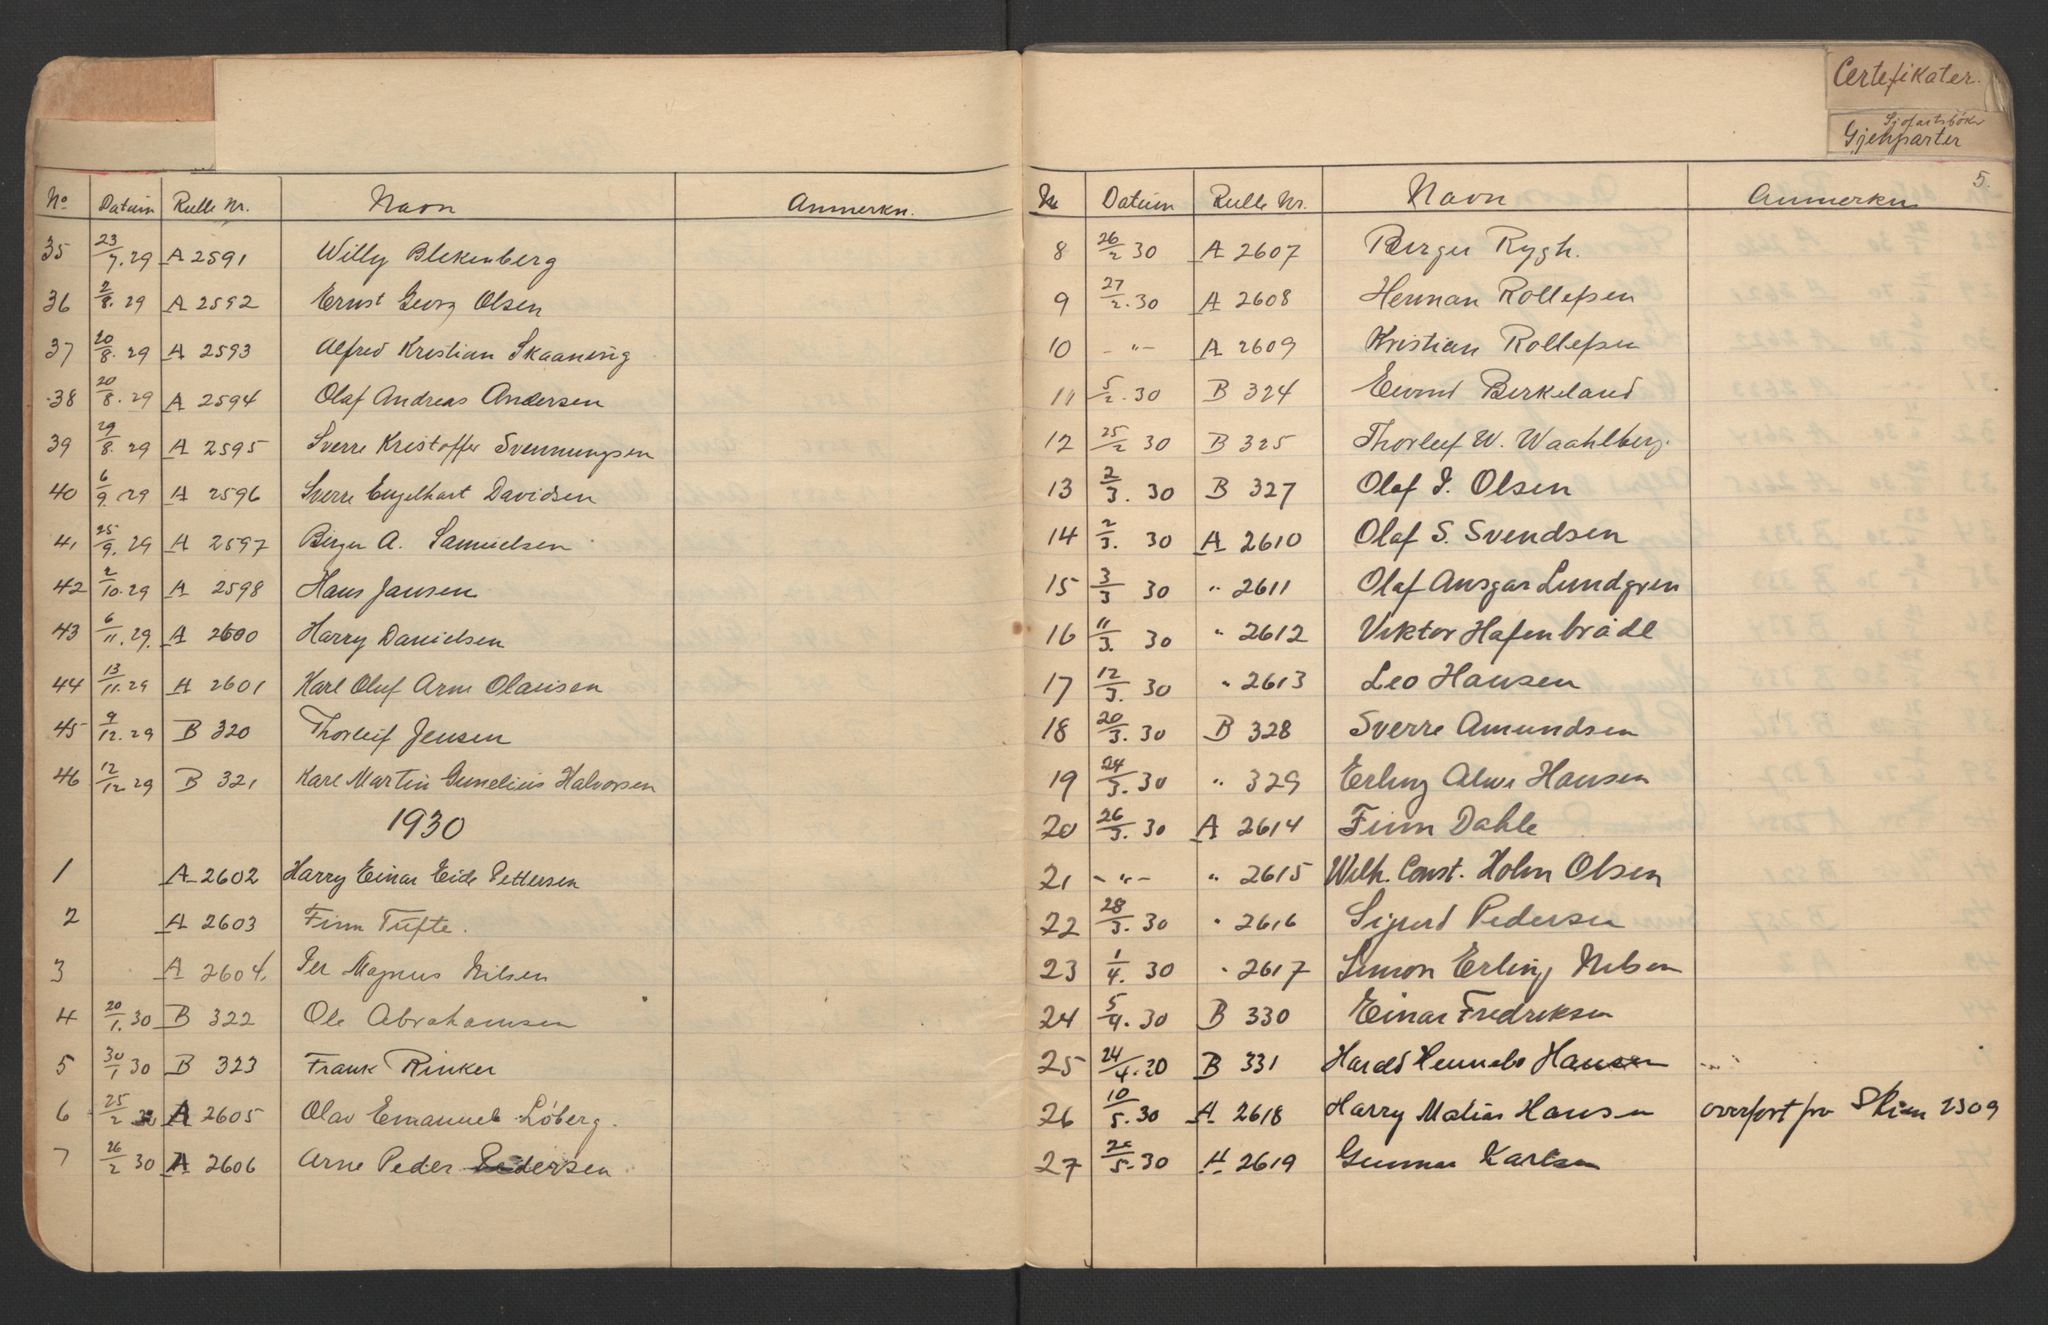 No Datum Rulle Nr. Navn Anmerkn.
35 23/7.29 A 2591 Willy Blekenberg
36 2/8.29 A 2592 Ernst Georg Olsen
37 20/8.29 A 2593 Alfred Kristian Skaaning
38 20/8.29 A 2594 Olaf Andreas Andersen
39 29/8.29 A 2595 Sverre Kristoffer Svennungsen
40 6/9.29 A 2596 Sverre Engelhart Davidsen
41 25/9.29 A 2597 Birger A. Samuelsen
42 2/10.29 A 2598 Hans Jansen
43 6/11.29. A 2600 Harry Danielsen
44 13/11.29 A 2601 Karl Oluf Arne Olausen
45 9/12.29 B 320 Thorleif Jensen
46 12/12.29 B 321 Karl Martin Gunelius Halvorsen
1930
1 A 2602 Harry Einar Eide Pettersen
2 A 2603 Finn Tufte.
3 A 2604 Per Magnus Nilsen
4 20/1.30 B 322 Ole Abrahamsen
5 30/1 30 B 323 Frank Rinker
6 25/2 A 2605 Olav Emanuel Løberg.
7 26/2 30 A 2606 Arne Peder Pedersen
Certefikater.
Sjøfartsbøker
Gjenparter
5.
Nr Datum Rulle Nr. Navn Anmerkn
8 26/2 30 A 2607 Birger Rygh.
9 27/2.30 A 2608 Herman Rollefsen
10 -"- A 2609 Kristian Rollefsen
11 5/2.30 B 324 Eivind Birkeland
12 25/2 30 B 325 Thorleif W. Waahlberg.
13 2/3.30 B 327 Olaf I. Olsen
14 2/3.30 A 2610 Olaf S. Svendsen
15 3/3 30 " 2611 Olaf Ansgar Lundgren
16 11/3.30 " 2612 Viktor Hafenbrådl
17 12/3.30 " 2613 Leo Hansen
18 20/3.30 B 328 Sverre Amundsen
19 24/3.30 " 329 Erling Alme Hansen
20 26/3.30 A 2614 Finn Dahle
21 -"- " 2615 Wilh. Const. Holm Olsen
22 28/3.30 " 2616 Sigurd Pedersen
23 1/4.30 " 2617 Simon Erling Nilsen
24 5/4.30 B 330 Einar Fredriksen
25 24/4.30 B 331 Harald Hansen
26 10/5.30 A 2618 Harry Matias Hansen overført fra Skien 2309
27 20/5.30 A 2619 Gunnar Karlsen